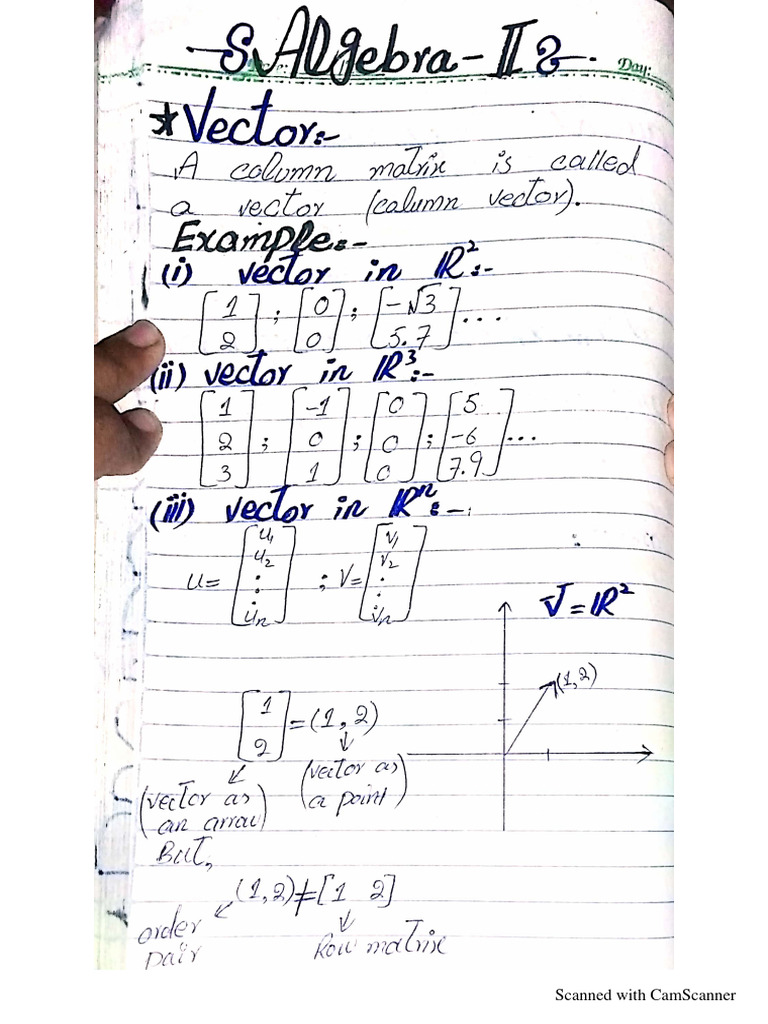 S Algebra-II
Day:
*Vector:-
A column matrix is called
a vector (calumn vector).
Example:-
(i) vector in ℝ²:-
[1 2] ; [0 0] ; [-√3 5.7] ...
(ii) vector in ℝ³:-
[1 2 3] ; [-1 0 1] ; [0 0 0] ; [5 -6 7.9] ...
(iii) vector in ℝⁿ:-
u= [u₁ u₂ : uₙ] ; V= [v₁ v₂ : vₙ]
V=ℝ²
(1,2)
[1 2] = (1, 2)
(vector as an array)
(vector as a point)
But,
(1,2)≠[1 2]
order pair
Row matrix
Scanned with CamScanner